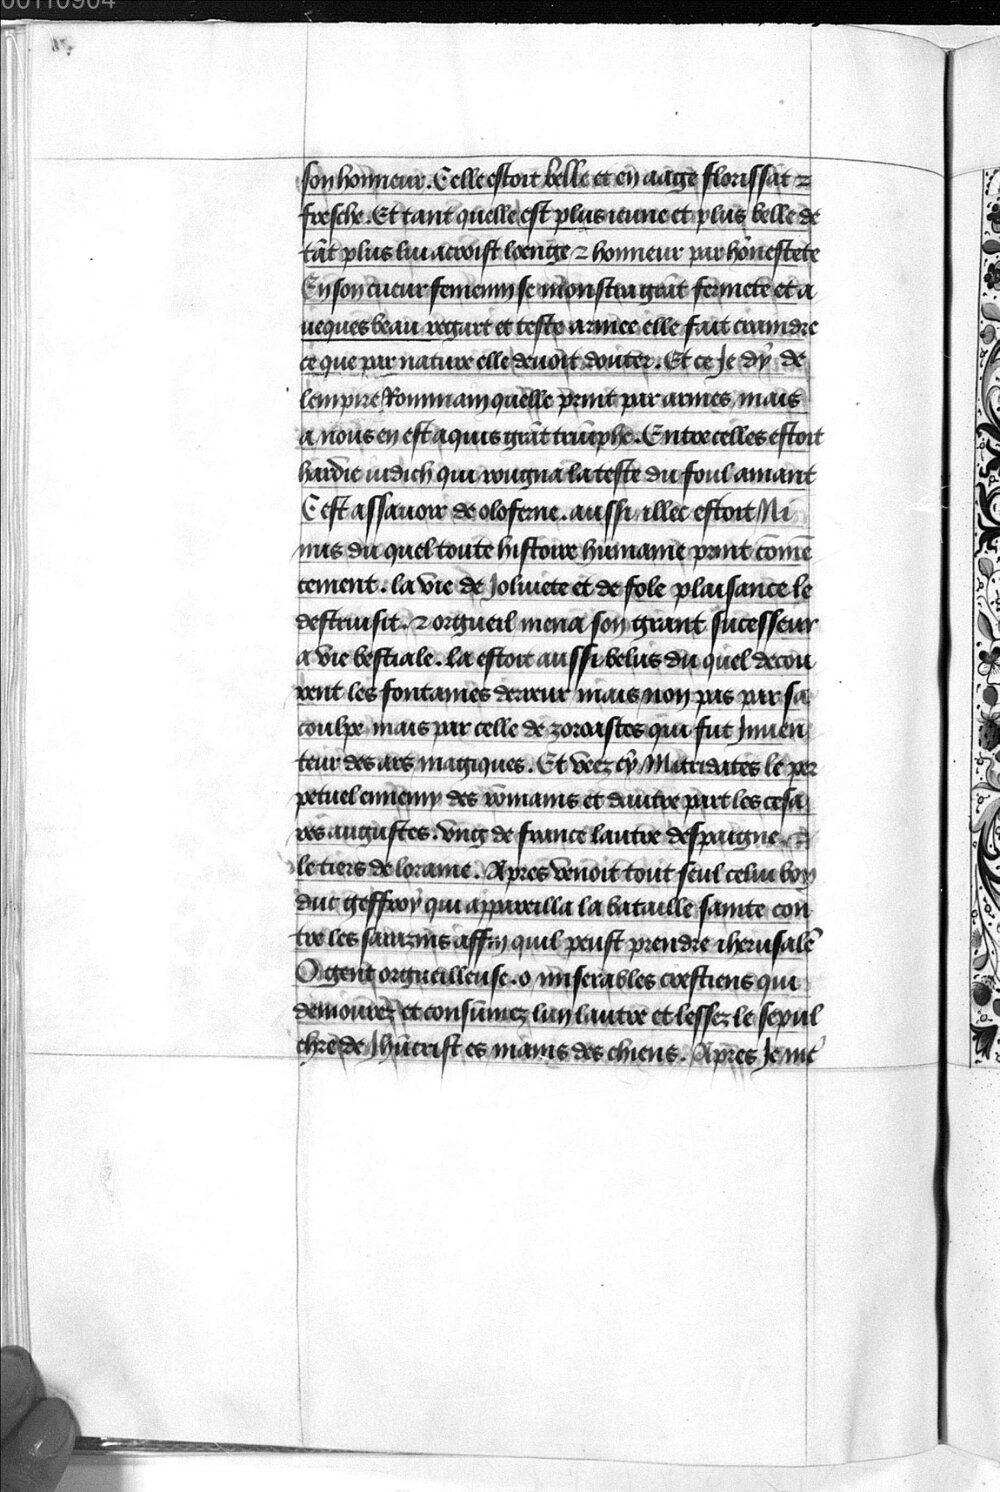 00110904
son honneur. Celle estoit belle et en aage florissāt ⁊
fresche. Et tant quelle est plus ieune et plus belle de
tāt plus lui acroist loenge ⁊ honneur par hōnestete
En son cueur femenin se monstra grāt fermete et a
uecques beau regart et teste armee elle fait craindre
ce que par nature elle devoit douter. Et ce Je dy de
lempire Rommain quelle print par armes mais
a nous en est aquis grāt triūphe. Entre celles estoit
hardie iudich qui rougna la teste du foul amant
Cest assauoir de oloferne. aussi illec estoit Ni
nus du quel toute histoire humaine print cōme
cement. la vie de Joliuete et de fole plaisance le
destruisit. ⁊ orgueil mena son grant sucesseur
a vie bestiale. la estoit aussi belus du quel decou
rent les fontaines derreur mais non pas par sa
coulpe mais par celle de zoroastes qui fut Inuen
teur des ars magiques. Et veez cy Mitridates le per
petuel ennemy des rommains et dautre part les cesa
res augustes. vng de france lautre despaigne
le tiers de loraine. Apres venoit tout seul celui bon
duc geffroy qui appareilla la bataille sainte con
tre les sarazins affin quil peust prendre iherusalē
O gent orgueilleuse. o miserables crestiens qui
demourez et consūmez lun lautre et lessez le sepul
chre de Jhūcrist es mains des chiens. Apres Je me